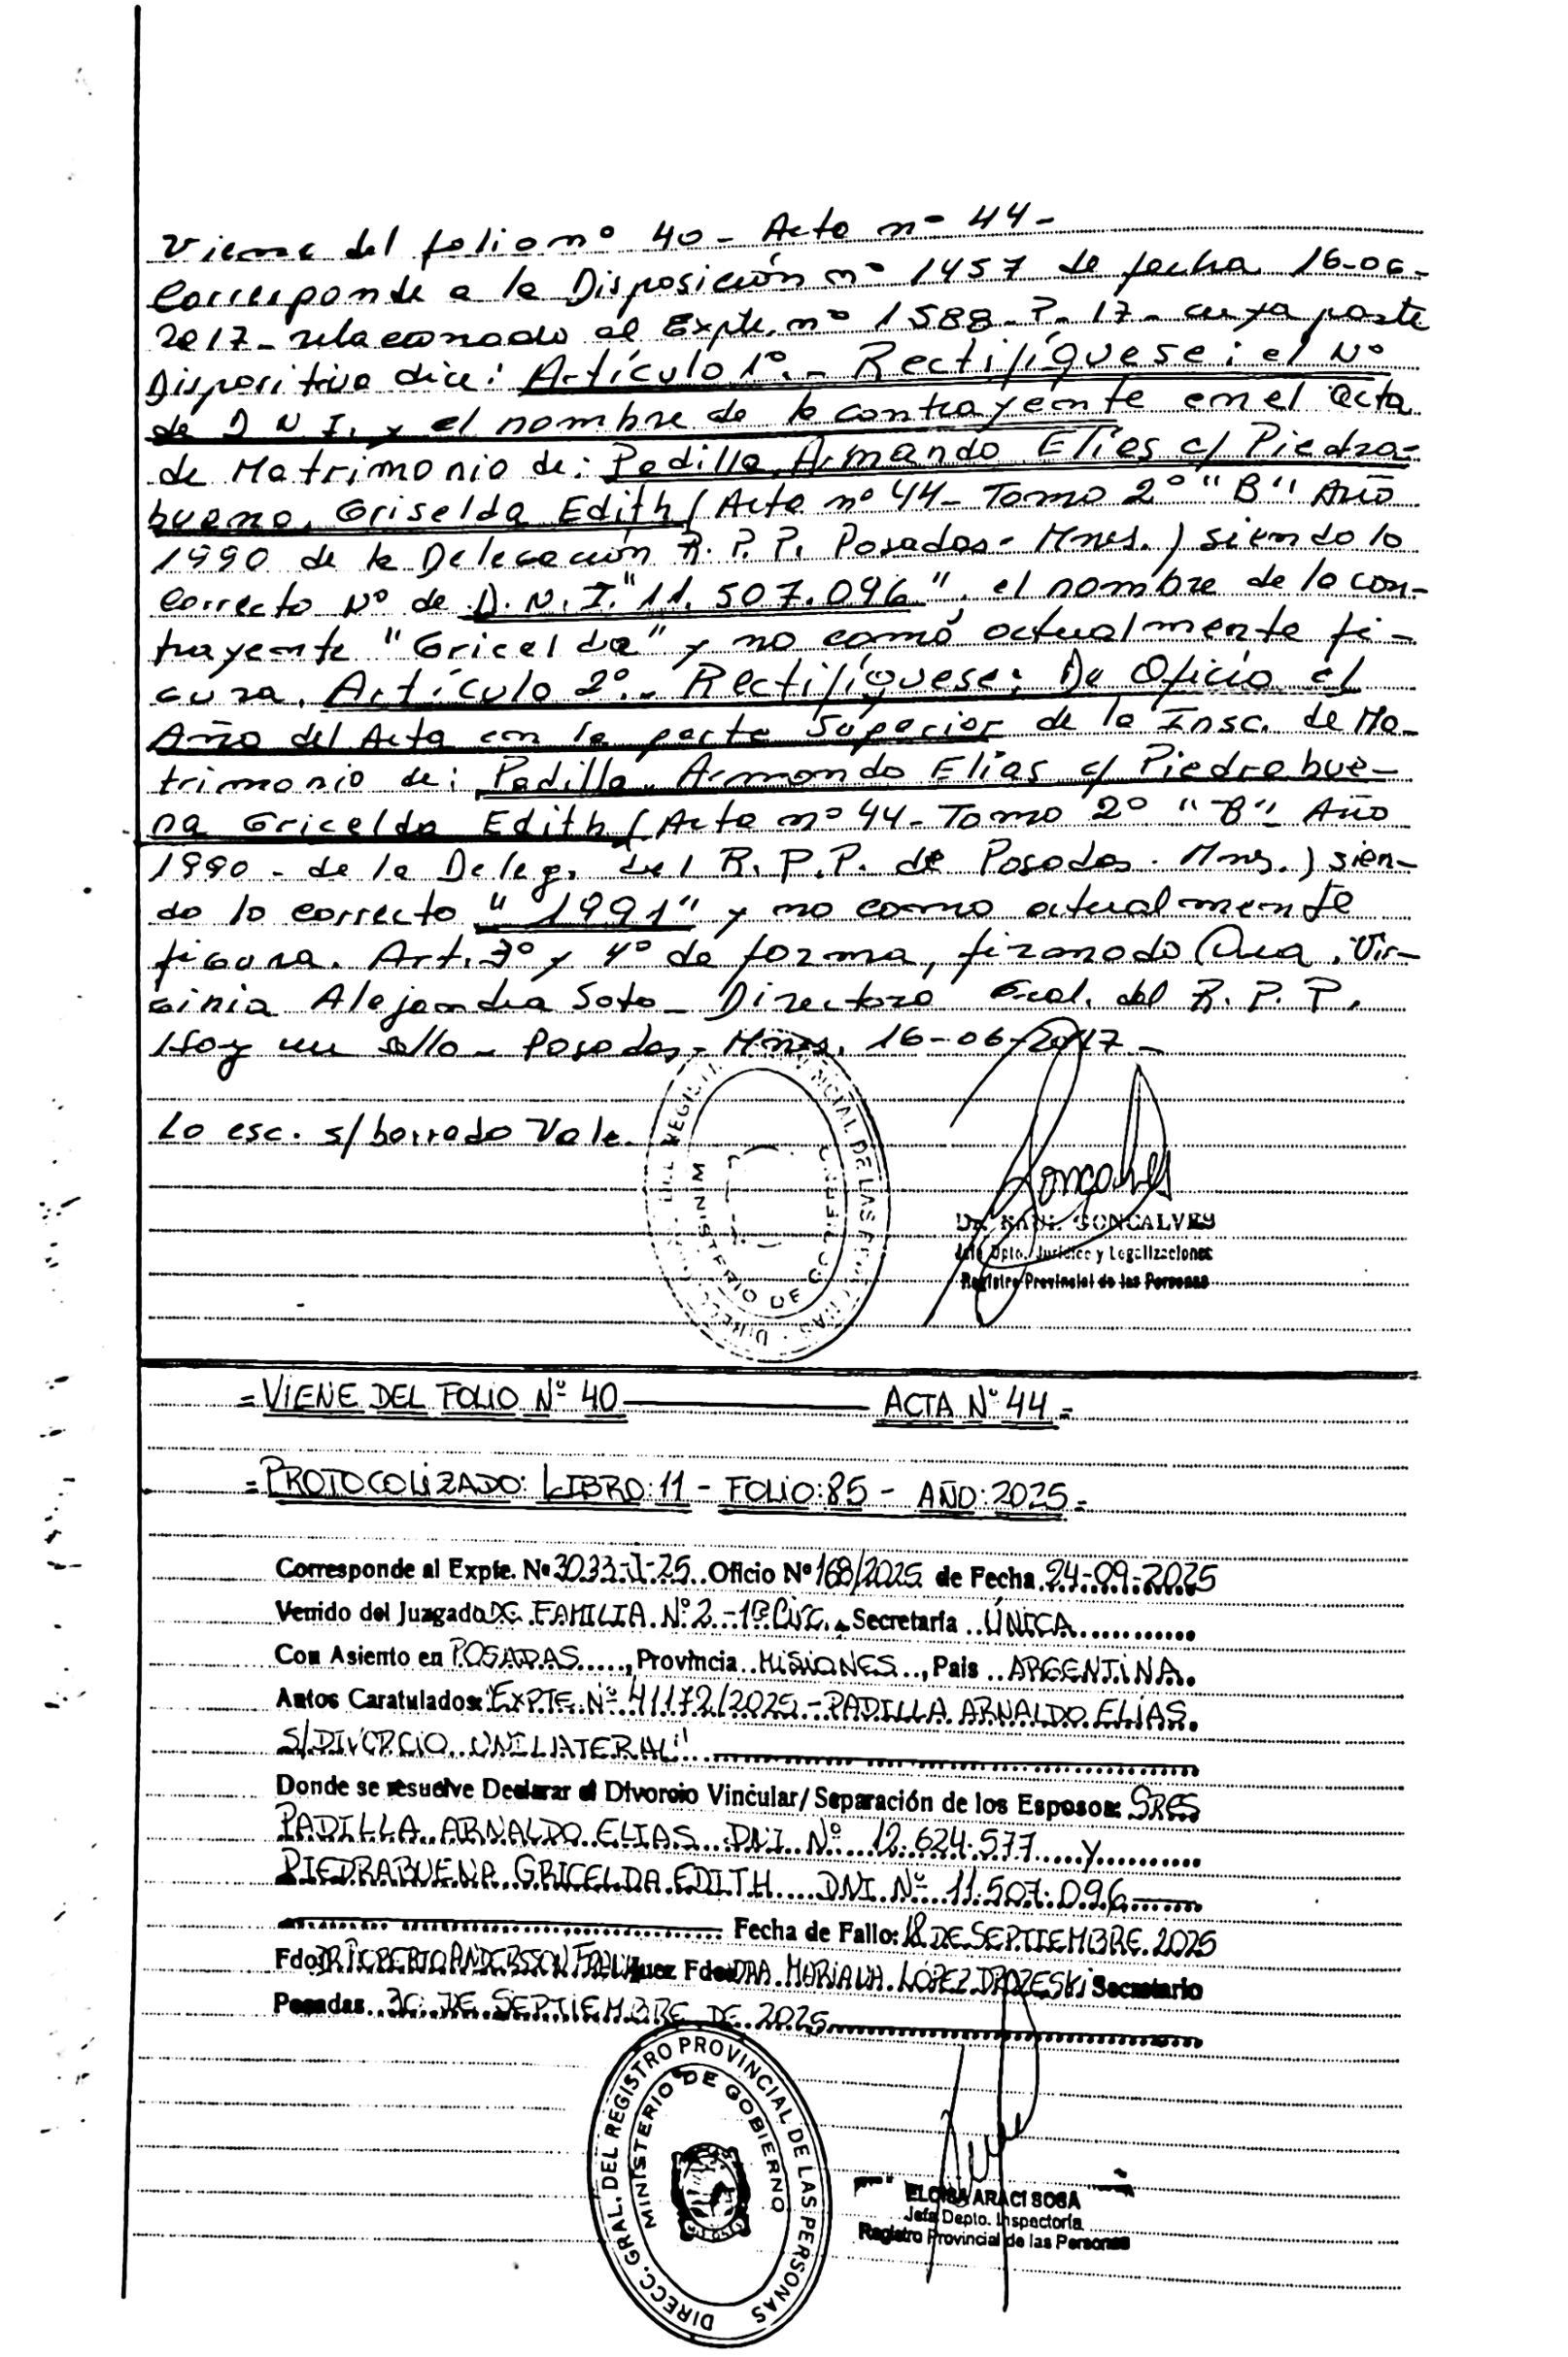 Viene del folio nº 40 - Acta nº 44 -
Corresponde a la Disposición nº 1457 de fecha 16-06-
2017 - relacionado al Expte. nº 1588 - P - 17 - cuya parte
Dispositiva dice: Artículo 1º.- Rectifíquese: el Nº
de D N I. y el nombre de la contrayente en el acta
de Matrimonio de: Padilla, Armando Elías c/ Piedra-
buena, Griselda Edith (Acta nº 44 - Tomo 2º "B" Año
1990 de la Delegación R. P. P. Posadas - Mnes.) siendo lo
correcto Nº de D. N. I. "11.507.096", el nombre de la con-
trayente "Gricelda" y no como actualmente fi-
gura. Artículo 2º.- Rectifíquese: De Oficio el
Año del Acta en la parte Superior de la Insc. de Ma-
trimonio de: Padilla, Armando Elías c/ Piedrabue-
na Gricelda Edith (Acta nº 44 - Tomo 2º "B" - Año
1990 - de la Deleg. del R. P. P. de Posadas - Mnes.) sien-
do lo correcto "1991" y no como actualmente
figura. Art. 3º y 4º de forma, firmado Vir-
ginia Alejandra Soto - Directora Gral. del R. P. P.
Hoy un sello - Posadas - Mnes. 16-06-2017 -
Lo esc. s/borrado Vale.
MINISTERIO DE GOBIERNO
Gonçalves
DR. RAUL GONCALVES
Jefe Dpto. Jurídico y Legalizaciones
Registro Provincial de las Personas
= VIENE DEL FOLIO Nº 40 ACTA Nº 44 =
= PROTOCOLIZADO: LIBRO: 11 - FOLIO: 85 - AÑO: 2025 =
Corresponde al Expte. Nº 3033-I-25 Oficio Nº 168/2025 de Fecha 24-09-2025
Venido del Juzgado DE FAMILIA Nº 2 - 1º Circ. Secretaría ÚNICA
Con Asiento en POSADAS, Provincia MISIONES, País ARGENTINA.
Autos Caratulados: "EXPTE Nº 41172/2025 - PADILLA ARNALDO ELIAS
S/DIVORCIO UNILATERAL"
Donde se resuelve Declarar el Divorcio Vincular/Separación de los Esposos: SRES
PADILLA ARNALDO ELIAS DNI Nº 12.624.577 y
PIEDRABUENA GRICELDA EDITH DNI Nº 11.507.096
Fecha de Fallo: 18 DE SEPTIEMBRE 2025
Fdo: DR ROBERTO ANDERSSON Juez Fdo: DRA. MARIANA LÓPEZ Secretario
Posadas 30 DE SEPTIEMBRE DE 2025
DIRECC. GRAL. DEL REGISTRO PROVINCIAL DE LAS PERSONAS
MINISTERIO DE GOBIERNO
ELOISA ARACI SOSA
Jefa Depto. Inspectoría
Registro Provincial de las Personas